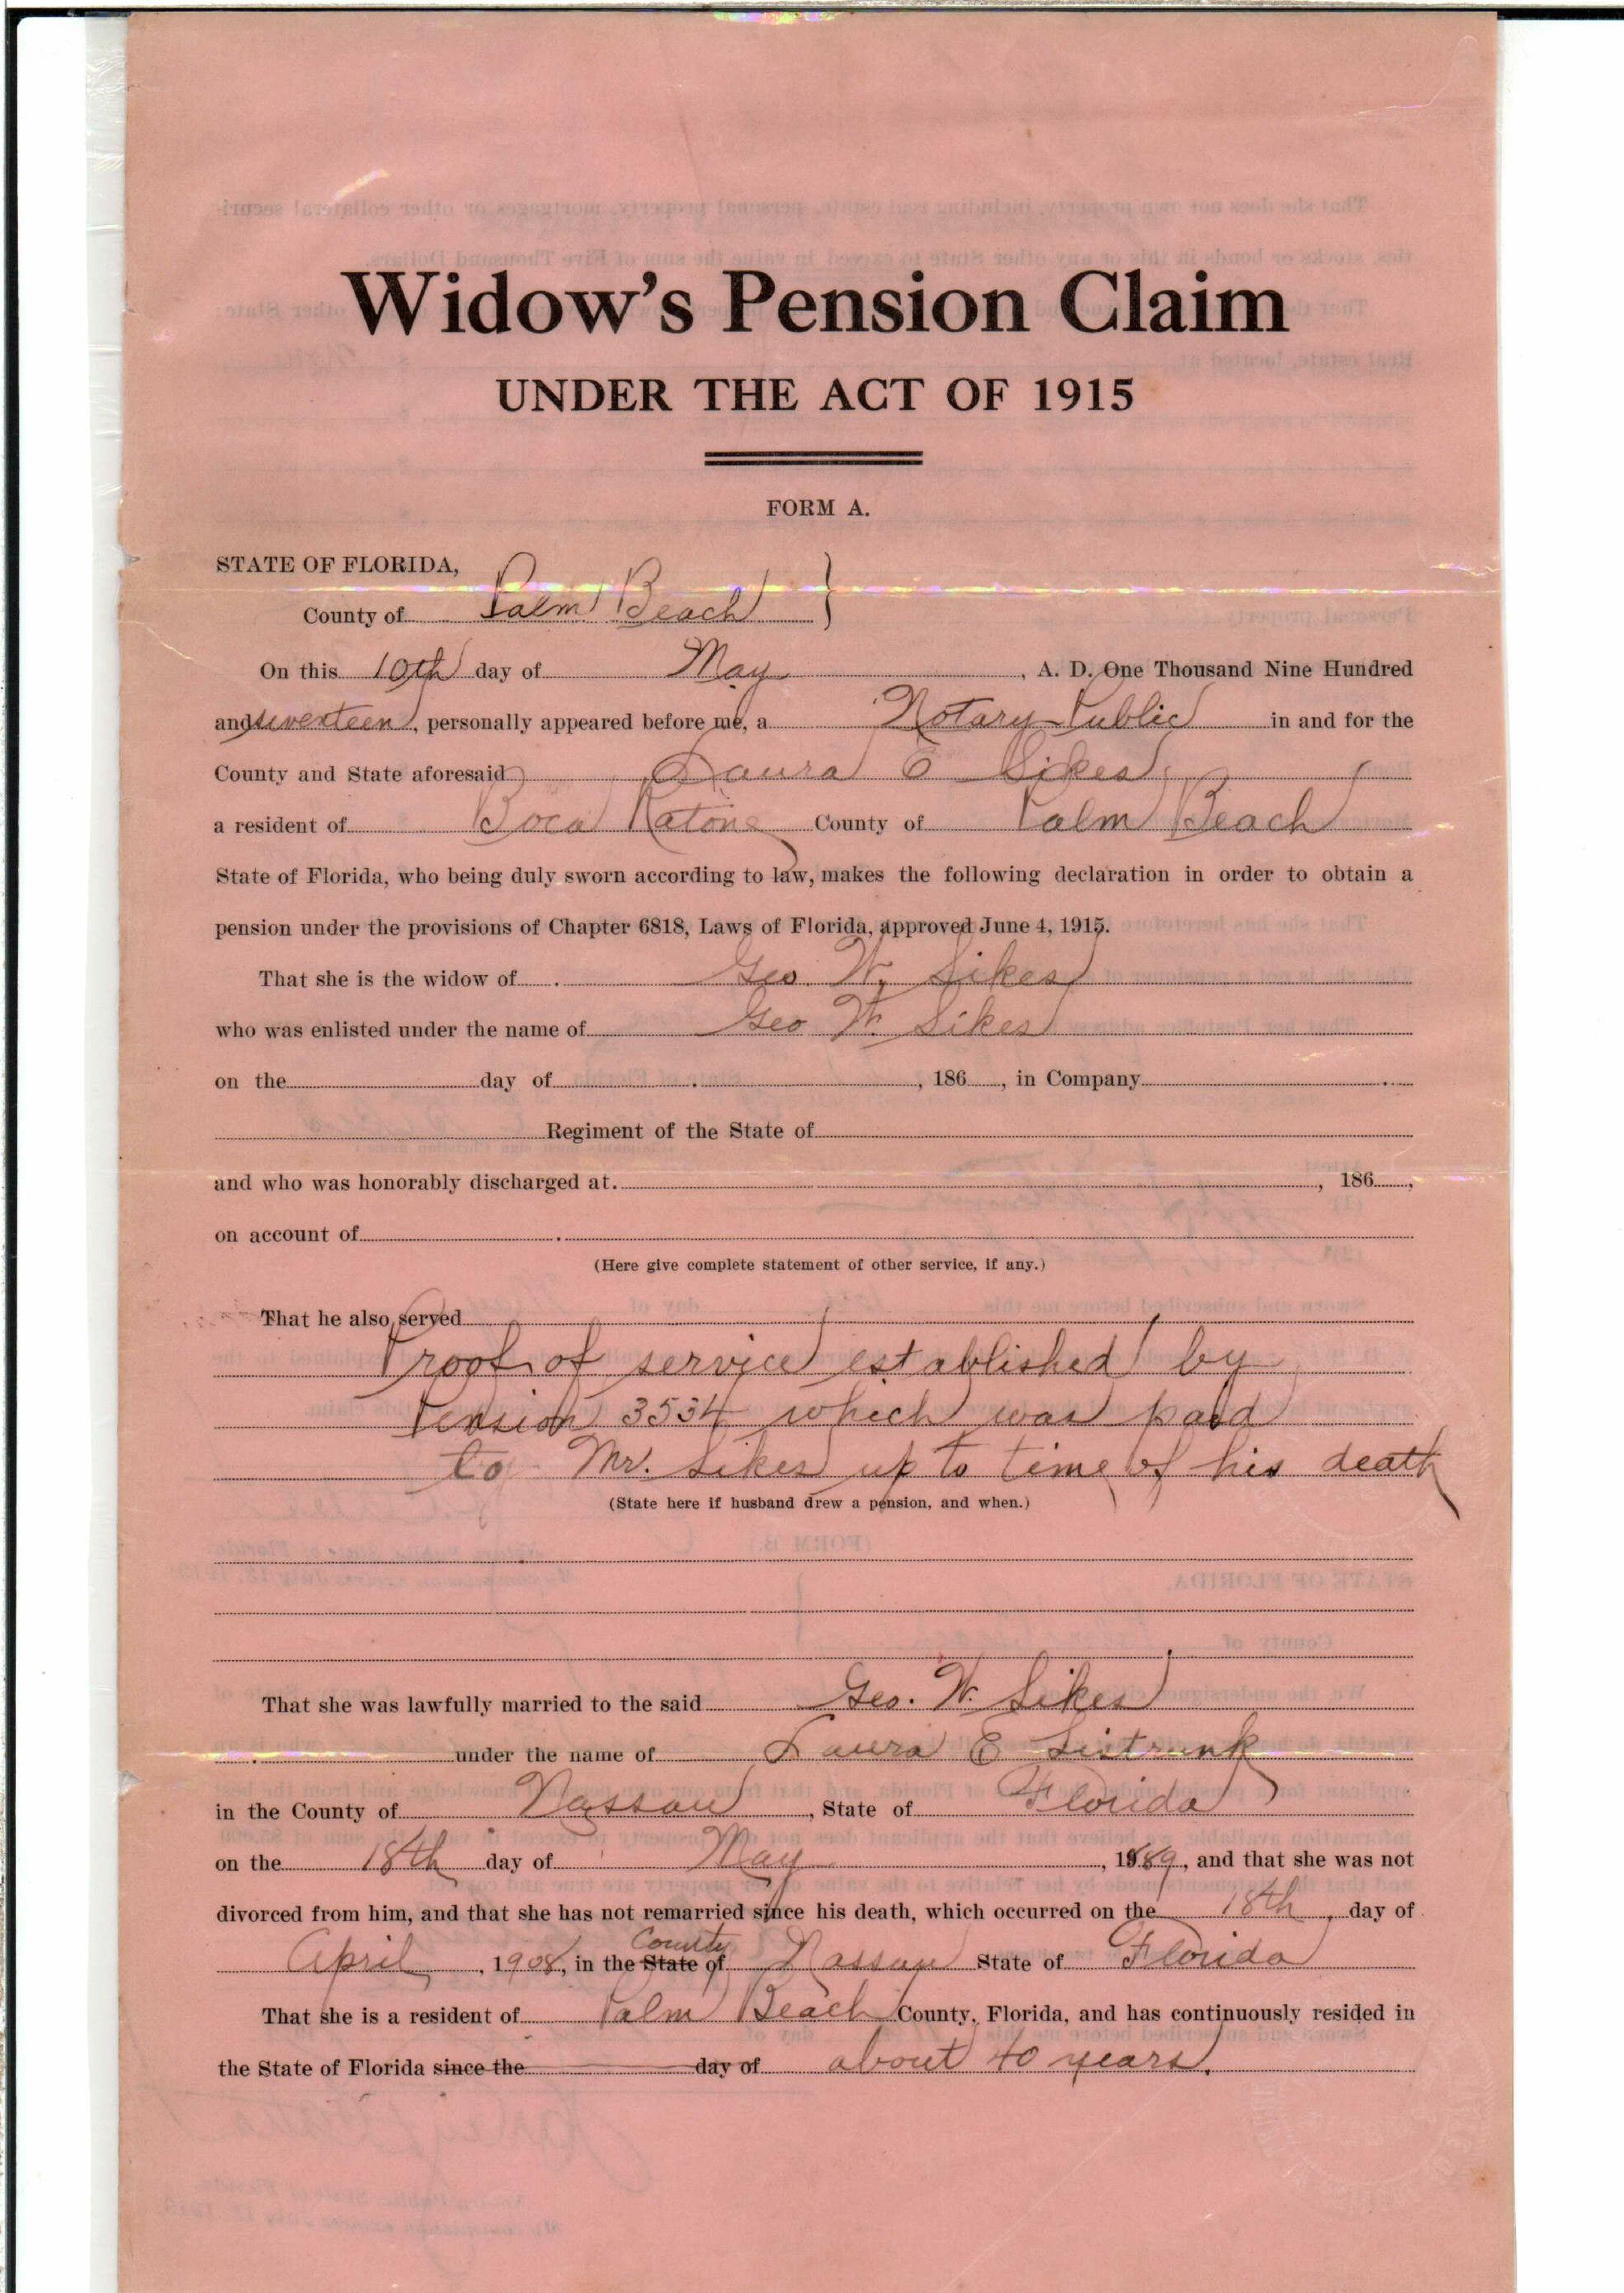 Widow's Pension Claim
UNDER THE ACT OF 1915
FORM A.
STATE OF FLORIDA,
County of Palm Beach }
On this 10th day of May, A. D. One Thousand Nine Hundred
and seventeen, personally appeared before me, a Notary Public in and for the
County and State aforesaid Laura E Sikes
a resident of Boca Ratone County of Palm Beach
State of Florida, who being duly sworn according to law, makes the following declaration in order to obtain a
pension under the provisions of Chapter 6818, Laws of Florida, approved June 4, 1915.
That she is the widow of Geo. W. Sikes
who was enlisted under the name of Geo W. Sikes
on the day of , 186 , in Company
Regiment of the State of
and who was honorably discharged at. , 186 ,
on account of
(Here give complete statement of other service, if any.)
That he also served
Proof of service established by
Pension 3534 which was paid
to Mr. Sikes up to time of his death
(State here if husband drew a pension, and when.)
That she was lawfully married to the said Geo. W. Sikes
under the name of Laura E Sistrunk
in the County of Nassau, State of Florida
on the 18th day of May, 1889, and that she was not
divorced from him, and that she has not remarried since his death, which occurred on the 18th, day of
April, 1908, in the State of County Nassau State of Florida
That she is a resident of Palm Beach County, Florida, and has continuously resided in
the State of Florida since the day of about 40 years.